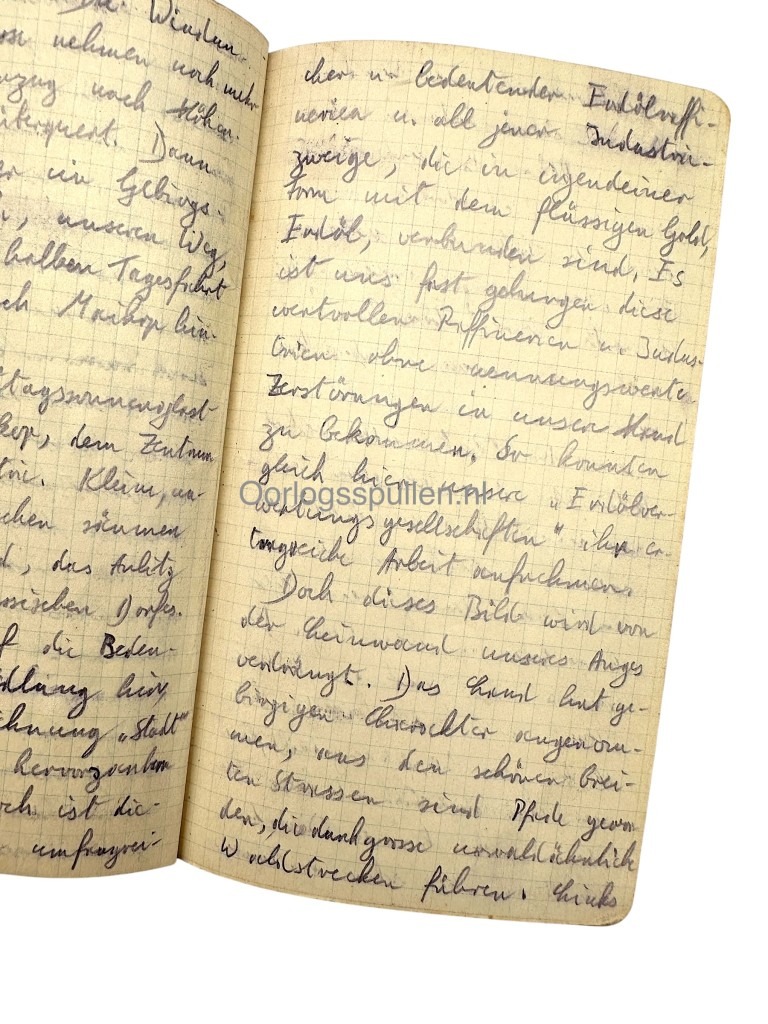 Die Windun-
nehmen noch mehr
nach Höhen-
Dann
ein Gebirgs-
unseren Weg,
halben Tagesfahrt
Maikop hin-
dem Zentrum
Klein, un-
säumen
das Antlitz
Dorfes.
die Bedeu-
hier,
"Stadt"
ist die-
umfangrei-
cher u. bedeutender Erdölraffi-
nerien u. all jener Industrie-
zweige, die in irgendeiner
Form mit dem flüssigen Gold,
Erdöl, verbunden sind. Es
ist uns fast gelungen diese
wertvollen Raffinerien u. Indus-
trien ohne nennungswerte
Zerstörungen in unsere Hand
zu bekommen. So konnten
gleich hier unsere „Erdölver-
wertungsgesellschaften" ihre er-
tragreiche Arbeit aufnehmen.
Doch dieses Bild wird von
der Leinwand unseres Auges
verdrängt. Das Land hat ge-
birgigen Charackter angenom-
men, aus den schönen brei-
ten Strassen sind Pfade gewor
den, die durch grosse urwaldähnliche
Waldstrecken führen. Links
Oorlogsspullen.nl